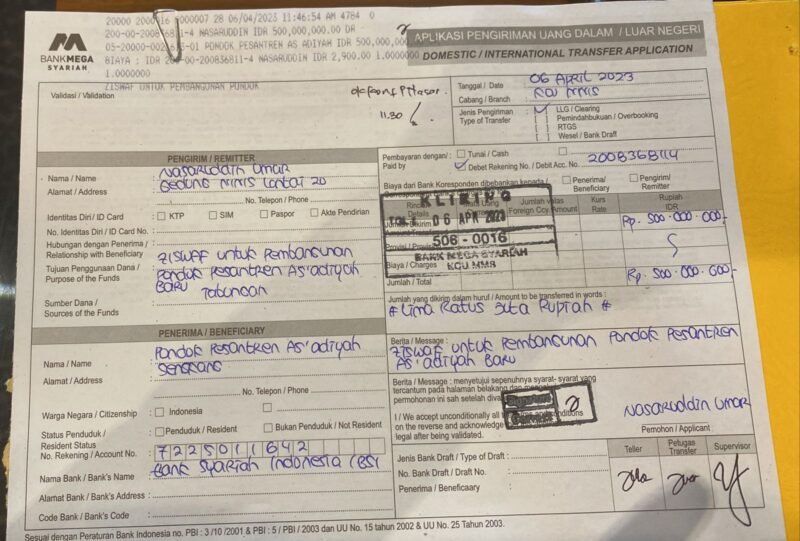 20000 2000 16 000007 28 06/04/2023 11:46:54 AM 4784 0
200-00-200836811-4 NASARUDDIN IDR 500,000,000.00 DR
PONDOK PESANTREN AS ADIYAH IDR 500,000,
BIAYA : IDR 200-00-200836811-4 NASARUDDIN IDR 2,900.00 1.0000000
1.0000000
ZISWAF UNTUK PEMBANGUNAN PONDOK
BANKMEGA
SYARIAH
APLIKASI PENGIRIMAN UANG DALAM / LUAR NEGERI
DOMESTIC / INTERNATIONAL TRANSFER APPLICATION
Validasi / Validation
11.30
Tanggal / Date : 06 APRIL 2023
Cabang / Branch :
Jenis Pengiriman
Type of Transfer
LLG / Clearing
Pemindahbukuan / Overbooking
RTGS
Wesel / Bank Draft
PENGIRIM / REMITTER
Nama / Name : Nasaruddin Umar
Alamat / Address : Gedung MMIS Lantai 20
No. Telepon / Phone
Identitas Diri / ID Card : KTP SIM Paspor Akte Pendirian
No. Identitas Diri / ID Card No. :
Hubungan dengan Penerima /
Relationship with Beneficiary
Tujuan Penggunaan Dana /
Purpose of the Funds
ZISWAF untuk Pembangunan
Pondok Pesantren As'adiyah
BARU
Sumber Dana /
Sources of the Funds
Tabungan
Pembayaran dengan / Paid by
Tunai / Cash
Debet Rekening No. / Debit Acc. No. 2008368114
Biaya dari Bank Koresponden dibebankan kepada /
Penerima/
Beneficiary
Pengirim/
Remitter
Rincian
Details
Jumlah Valas
Foreign Ccy Amount
Kurs
Rate
Rupiah
IDR
Rp. 500.000.000,-
Biaya / Charges
Jumlah / Total
Rp. 500.000.000,-
KLIRING
TGL. 06 APR 2023
506 - 0016
BANK MEGA SYARIAH
KCU MMB
Jumlah yang dikirim dalam huruf / Amount to be transferred in words :
# Lima Ratus Juta Rupiah #
PENERIMA / BENEFICIARY
Nama / Name : Pondok Pesantren As'adiyah
Sengkang
Alamat / Address :
No. Telepon / Phone
Warga Negara / Citizenship : Indonesia
Status Penduduk /
Resident Status
Penduduk / Resident
Bukan Penduduk / Not Resident
No. Rekening / Account No. : 7225011642
Nama Bank / Bank's Name : Bank Syariah Indonesia (BSI
Alamat Bank / Bank's Address :
Code Bank / Bank's Code :
Berita / Message :
ZISWAF untuk Pembangunan Pondok Pesantren
As'adiyah BARU
Berita / Message : menyetujui sepenuhnya syarat- syarat yang
tercantum pada halaman belakang dan
permohonan ini sah setelah
I / We accept unconditionally all
on the reverse and acknowledge
legal after being validated.
Nasaruddin Umar
Pemohon / Applicant
Jenis Bank Draft / Type of Draft :
No. Bank Draft / Draft No. :
Penerima / Beneficaary :
Teller
Petugas
Transfer
Supervisor
Sesuai dengan Peraturan Bank Indonesia no. PBI : 3 /10 /2001 & PBI : 5 / PBI / 2003 dan UU No. 15 tahun 2002 & UU No. 25 Tahun 2003.